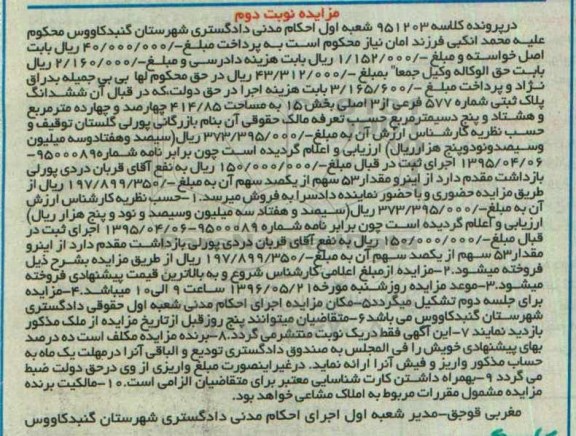 مزایده نوبت دوم
درپرونده کلاسه ۹۵۱۲۰۳ شعبه اول احکام مدنی دادگستری شهرستان گنبدکاووس محکوم
علیه محمد انکبی فرزند امان نیاز محکوم است به پرداخت مبلغ-/۴۰/۰۰۰/۰۰۰ ریال بابت
اصل خواسته و مبلغ -/۱/۱۵۲/۰۰۰ ریال بابت هزینه دادرسی و مبلغ-/۲/۱۶۰/۰۰۰ ریال
بابت حق الوکاله وکیل جمعا" بمبلغ -/۴۳/۳۱۲/۰۰۰ ریال در حق محکوم لها بی بی جمیله بدراق
نژاد و پرداخت مبلغ -/۳/۱۶۵/۶۰۰ بابت هزینه اجرا در حق دولت،که در قبال آن ششدانگ
پلاک ثبتی شماره ۵۷۷ فرعی از۳ اصلی بخش ۱۵ به مساحت ۴۱۴/۸۵ چهارصد و چهارده مترمربع
و هشتاد و پنج دسیمترمربع حسب تعرفه مالک حقوقی آن بنام بازرگانی پورلی گلستان توقیف و
حسب نظریه کارشناس ارزش آن به مبلغ-/۳۷۳/۳۹۵/۰۰۰ ریال(سیصد وهفتادوسه میلیون
وسیصدونودوپنج هزارریال) ارزیابی و اعلام گردیده است چون برابر نامه شماره۹۵۰۰۰۸۹-
۱۳۹۵/۰۴/۰۶ اجرای ثبت در قبال مبلغ-/۱۵۰/۰۰۰/۰۰۰ ریال به نفع آقای قربان دردی پورلی
بازداشت مقدم دارد از اینرو مقدار۵۳ سهم از یکصد سهم آن به مبلغ -/۱۹۷/۸۹۹/۳۵۰ ریال از
طریق مزایده حضوری و با حضور نماینده دادسرا به فروش میرسد.۱-حسب نظریه کارشناس ارزش
آن به مبلغ-/۳۷۳/۳۹۵/۰۰۰ ریال(سیصد و هفتاد سه میلیون وسیصد و نود و پنج هزار ریال)
ارزیابی و اعلام گردیده است چون برابر نامه شماره ۹۵۰۰۰۸۹-۱۳۹۵/۰۴/۰۶ اجرای ثبت در
قبال مبلغ-/۱۵۰/۰۰۰/۰۰۰ ریال به نفع آقای قربان دردی پورلی بازداشت مقدم دارد از اینرو
مقدار۵۳ سهم از یکصد سهم آن به مبلغ-/۱۹۷/۸۹۹/۳۵۰ ریال از طریق مزایده بشرح ذیل
فروخته میشود.۲-مزایده ازمبلغ اعلامی کارشناس شروع و به بالاترین قیمت پیشنهادی فروخته
میشود.۳-موعد مزایده روزشنبه مورخه۱۳۹۶/۰۵/۲۱ ساعت ۹ الی۱۰ میباشد.۴-مزایده
برای جلسه دوم تشکیل میگردد۵-مکان مزایده اجرای احکام مدنی شعبه اول حقوقی دادگستری
شهرستان گنبدکاووس می باشد۶-متقاضیان میتوانند پنج روز قبل ازتاریخ مزایده از ملک مذکور
بازدید نمایند ۷-این آگهی فقط دریک نوبت منتشرمی گردد.۸-برنده مزایده مکلف است ده درصد
بهای پیشنهادی خویش را فی المجلس به صندوق دادگستری تودیع و الباقی آنرا درمهلت یک ماه به
حساب مذکور واریز و فیش آنرا ارائه نماید. درغیراینصورت مبلغ واریزی از وی درحق دولت ضبط
می گردد ۹-بهمراه داشتن کارت شناسایی معتبر برای متقاضیان الزامی است.۱۰-مالکیت برنده
مزایده مشمول مقررات مربوط به املاک مشاعی خواهد بود.
مغربی قوجق-مدیر شعبه اول اجرای احکام مدنی دادگستری شهرستان گنبدکاووس